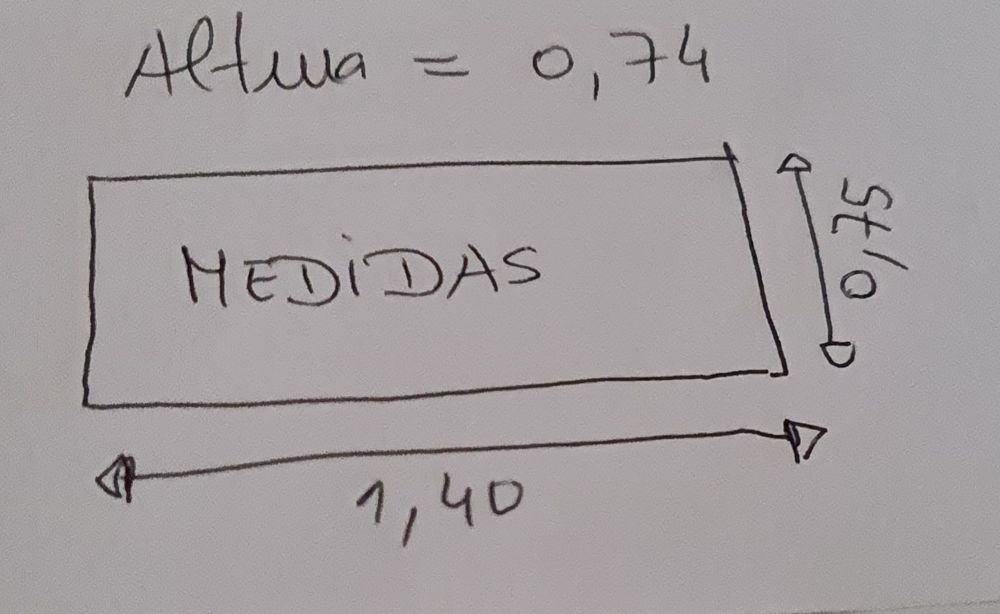 Altura = 0,74
MEDIDAS
0,75
1,40